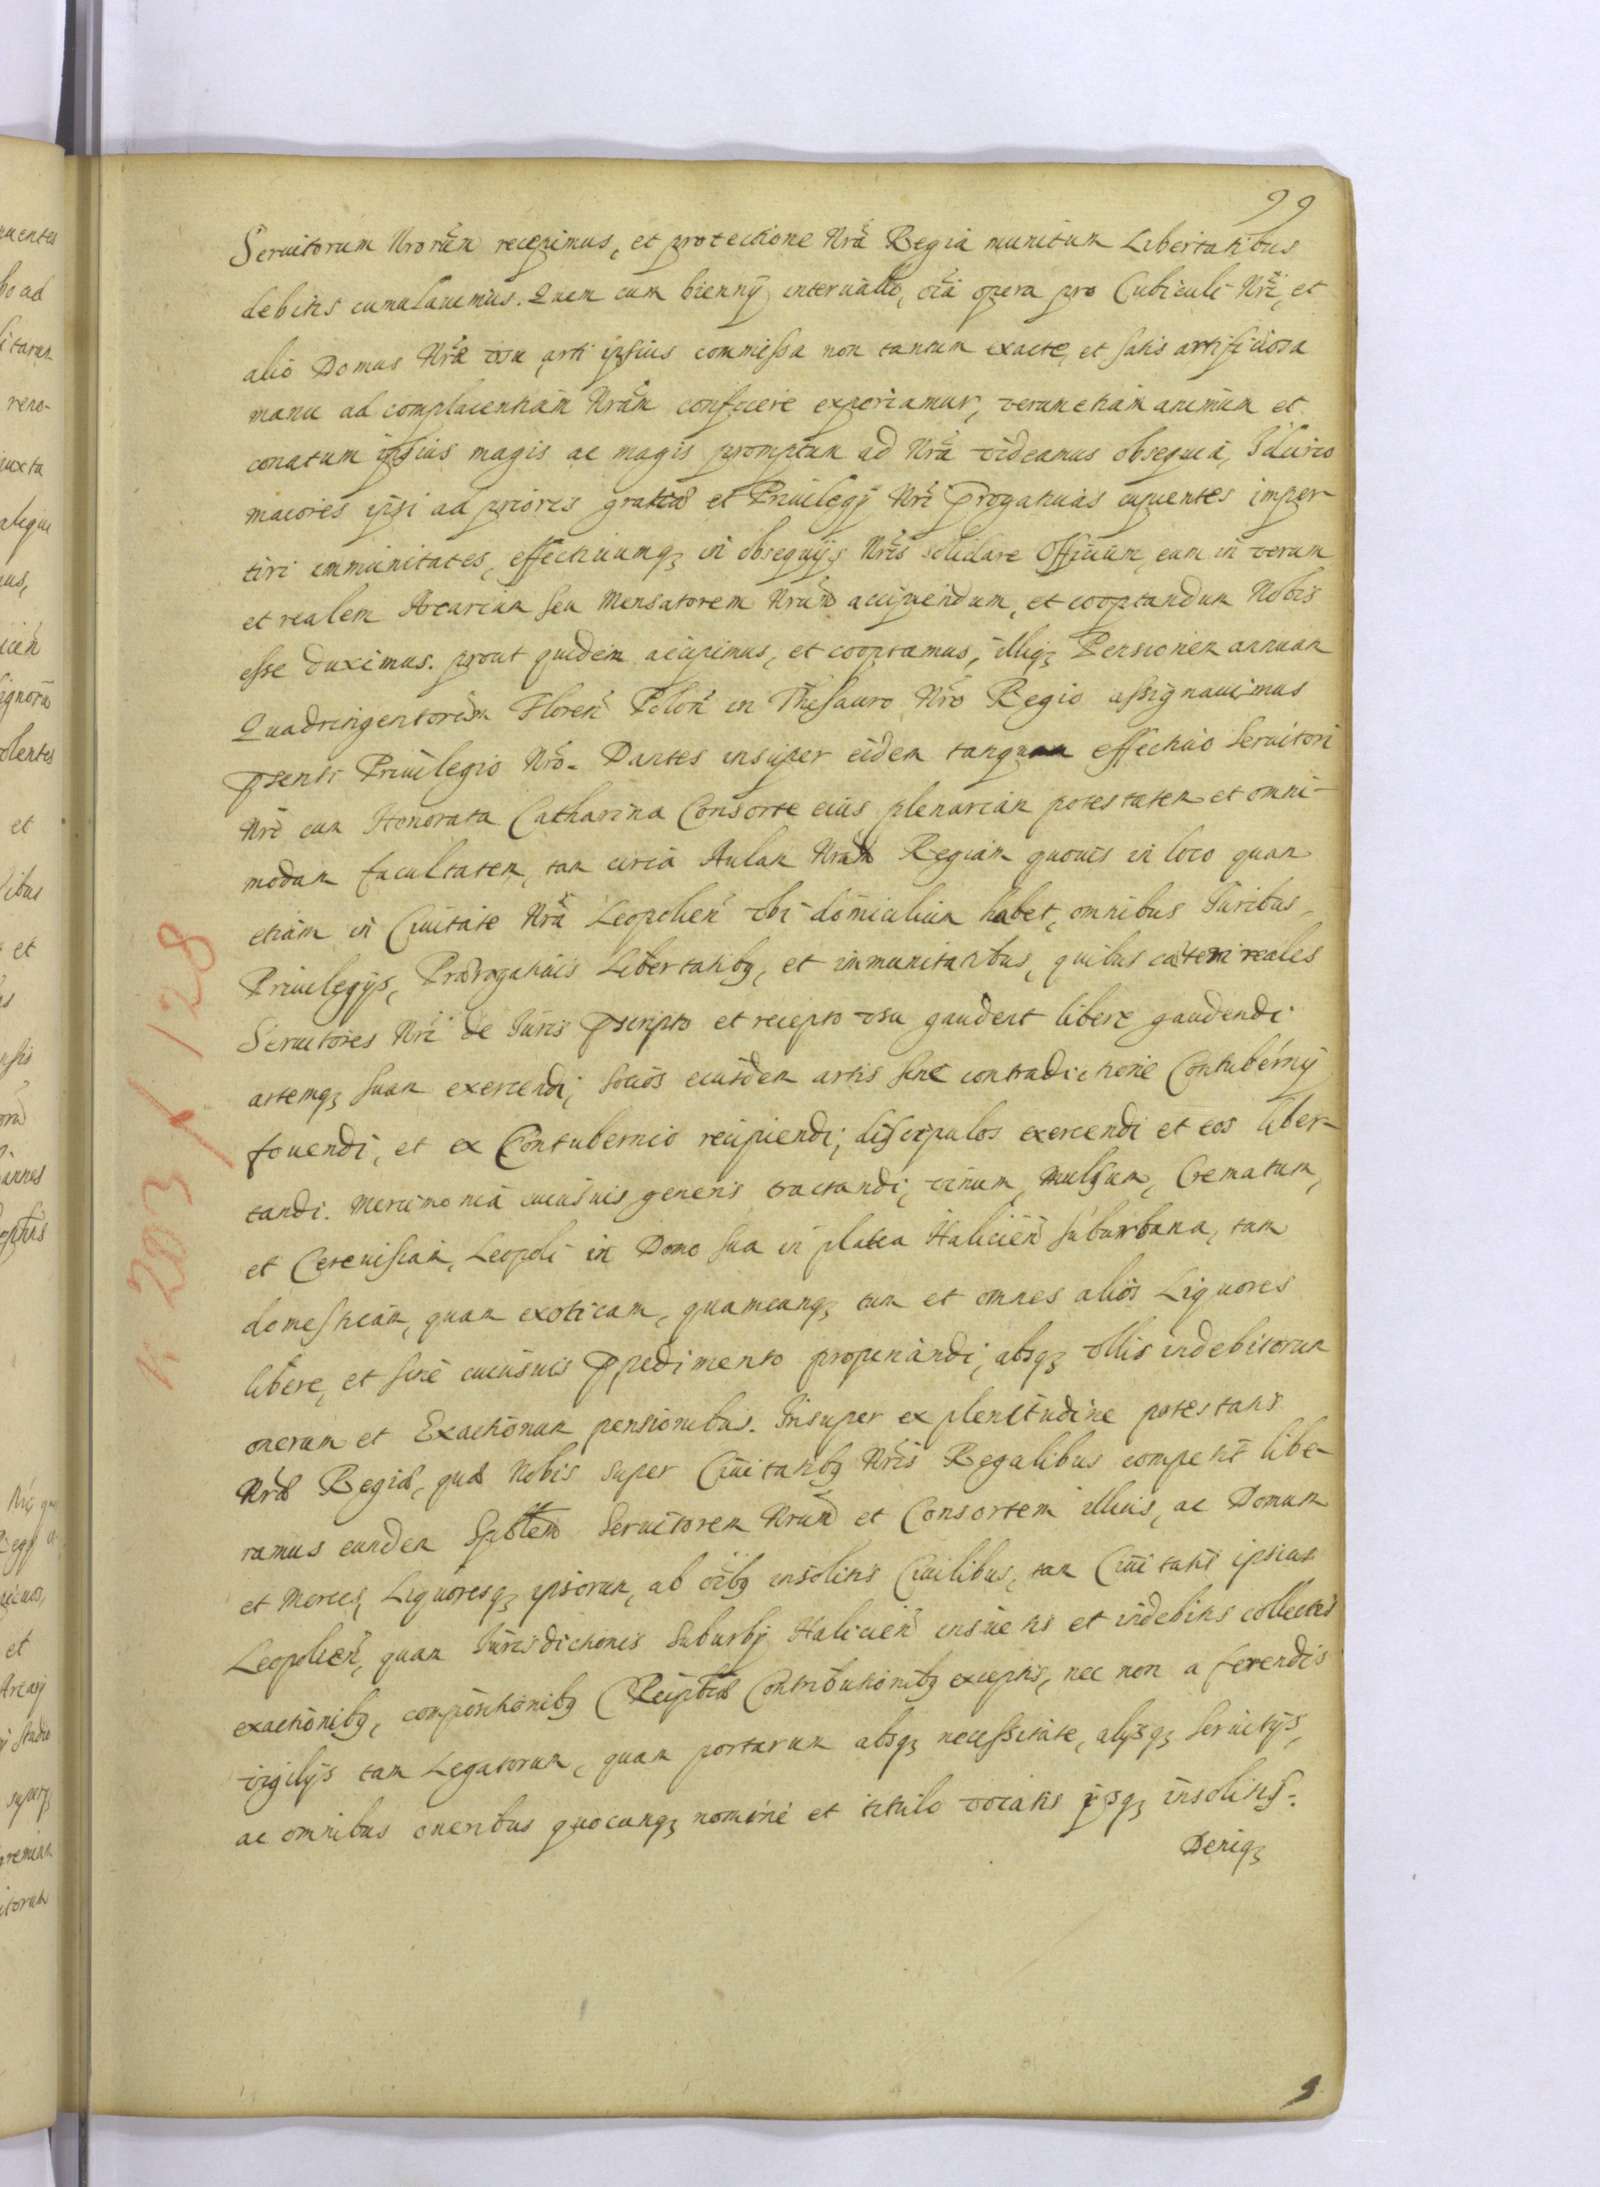 99
Seruitorum Nrorũm recepimus, et protectione Nrã Regia munitum Libertatibus
debitis cumulauimus. Quem cum biennij interuallo, oĩa opera pro Cubiculi Nrĩ, et
alio Domus Nræ vsu arti ipsius commissa non tantum exacte, et satis artificiosa
manu ad complacentiam Nrãm conficere experiamur, verum etiam animum et
conatum ipsius magis ac magis promptum ad Nrã videamus obsequia, Idcirco
maiores ipsi ad priores gratias et Priuilegij Nrĩ Prrogatiuas cupientes imper-
tiri immunitates, effectiuumq3 in obsequijs Nrĩs solidare Officium, eum in verum
et realem Arcarium seu Mensatorem Nrũm accipiendum, et cooptandum Nobis
esse duximus. prout quidem accipimus, et cooptamus, illiq3 Pensionem annuam
Quadringentorũm Floreñ Poloñ in Thesauro Nrõ Regio assignauimus
Psenti Priuilegio Nrõ. Dantes insuper eidem tanquam effectiuo Seruitori
Nrõ cum Honorata Catharina Consorte eius plenariam potestatem et omni-
modam facultatem, tam circa Aulam Nrãm Regiam quouis in loco quam
etiam in Ciuitate Nrã Leopolieñ vbi domicilium habet, omnibus Juribus,
Priuilegijs, Prærogatiuis Libertatibq, et immunitatibus, quibus cæteri reales
Seruitores Nrĩ de Juris Pscripto et recepto vsu gaudent libere gaudendi
artemq3 suam exercendi, socios eiusdem artis sine contradictione Contubernij
fouendi, et ex Contubernio recipiendi, discipulos exercendi et eos liber-
tandi. Mercimonia cuiusuis generis tractandi, vinum, Mulsum, Crematum,
et Cereuisiam, Leopoli in Domo sua in platea Halicieñ suburbana, tam
domesticam, quam exoticam, quamcunq3 tum et omnes alios Liquores
libere, et sine cuiusuis Ppedimento propinandi, absq3 vllis indebitorum
onerum et Exactionum pensionibus. Insuper ex plenitudine potestatis
Nræ Regiæ, quæ Nobis super Ciuitatibq Nrĩs Regalibus competit libe-
ramus eundem Servitorem Nrũm et Consortem illius, ac Domum
et Merces, Liquoresq3 ipsorum, ab oĩbq insolitis Ciuilibus, tam Ciuitatis ipsius
Leopolieñ, quam Jurisdictionis Suburbij Halicieñ insuetis et indebitis collectis
exactionibq, compositionibq Contributionibq exceptis, nec non a ferendis
vigilijs tam Legatorum, quam portarum absq3 necessitate, alijsq3 seruitijs,
ac omnibus oneribus quocunq3 nomine et titulo vocatis insolitis.
Deniq3
K 203 f 128